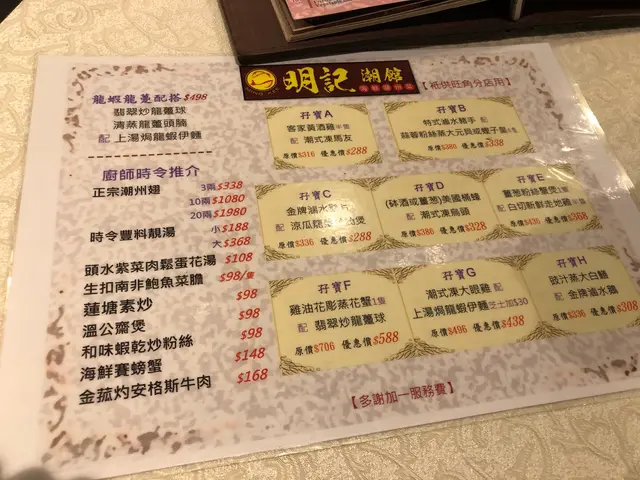 明記 潮館
【祇供旺角分店用】
龍蝦龍躉配搭 $498
翡翠炒龍躉球
清蒸龍躉頭腩
配 上湯焗龍蝦伊麵
廚師時令推介
正宗潮州翅 3兩 $338
10兩 $1080
20兩 $1980
時令豐料靚湯 小 $188
大 $368
頭水紫菜肉鬆蛋花湯 $108
生扣南非鮑魚菜膽 $98/隻
蓮塘素炒 $98
溫公齋煲 $98
和味蝦乾炒粉絲 $98
海鮮賽螃蟹 $148
金菰灼安格斯牛肉 $168
孖寶A
客家黃酒雞 半隻
配 潮式凍馬友
原價$316 優惠價$288
孖寶B
特式滷水勝手 配
蒜蓉粉絲蒸大元貝或蟶子皇
原價$380 優惠價$338
孖寶C
金牌滷水
配 涼瓜
原價$336 優惠價$288
孖寶D
(砵酒或薑葱)美國桶蠔
配 潮式凍烏頭
原價$386 優惠價$328
孖寶E
薑葱粉絲蟹煲
配 白切新鮮走地雞
優惠價$368
孖寶F
雞油花彫蒸花蟹 1隻
配 翡翠炒龍躉球
原價$706 優惠價$588
孖寶G
潮式凍大眼雞 配
上湯焗龍蝦伊麵 芝士加$30
原價$496 優惠價$438
孖寶H
豉汁蒸大白鱔
配 金牌滷水鵝
原價$336 優惠價$308
【多謝加一服務費】